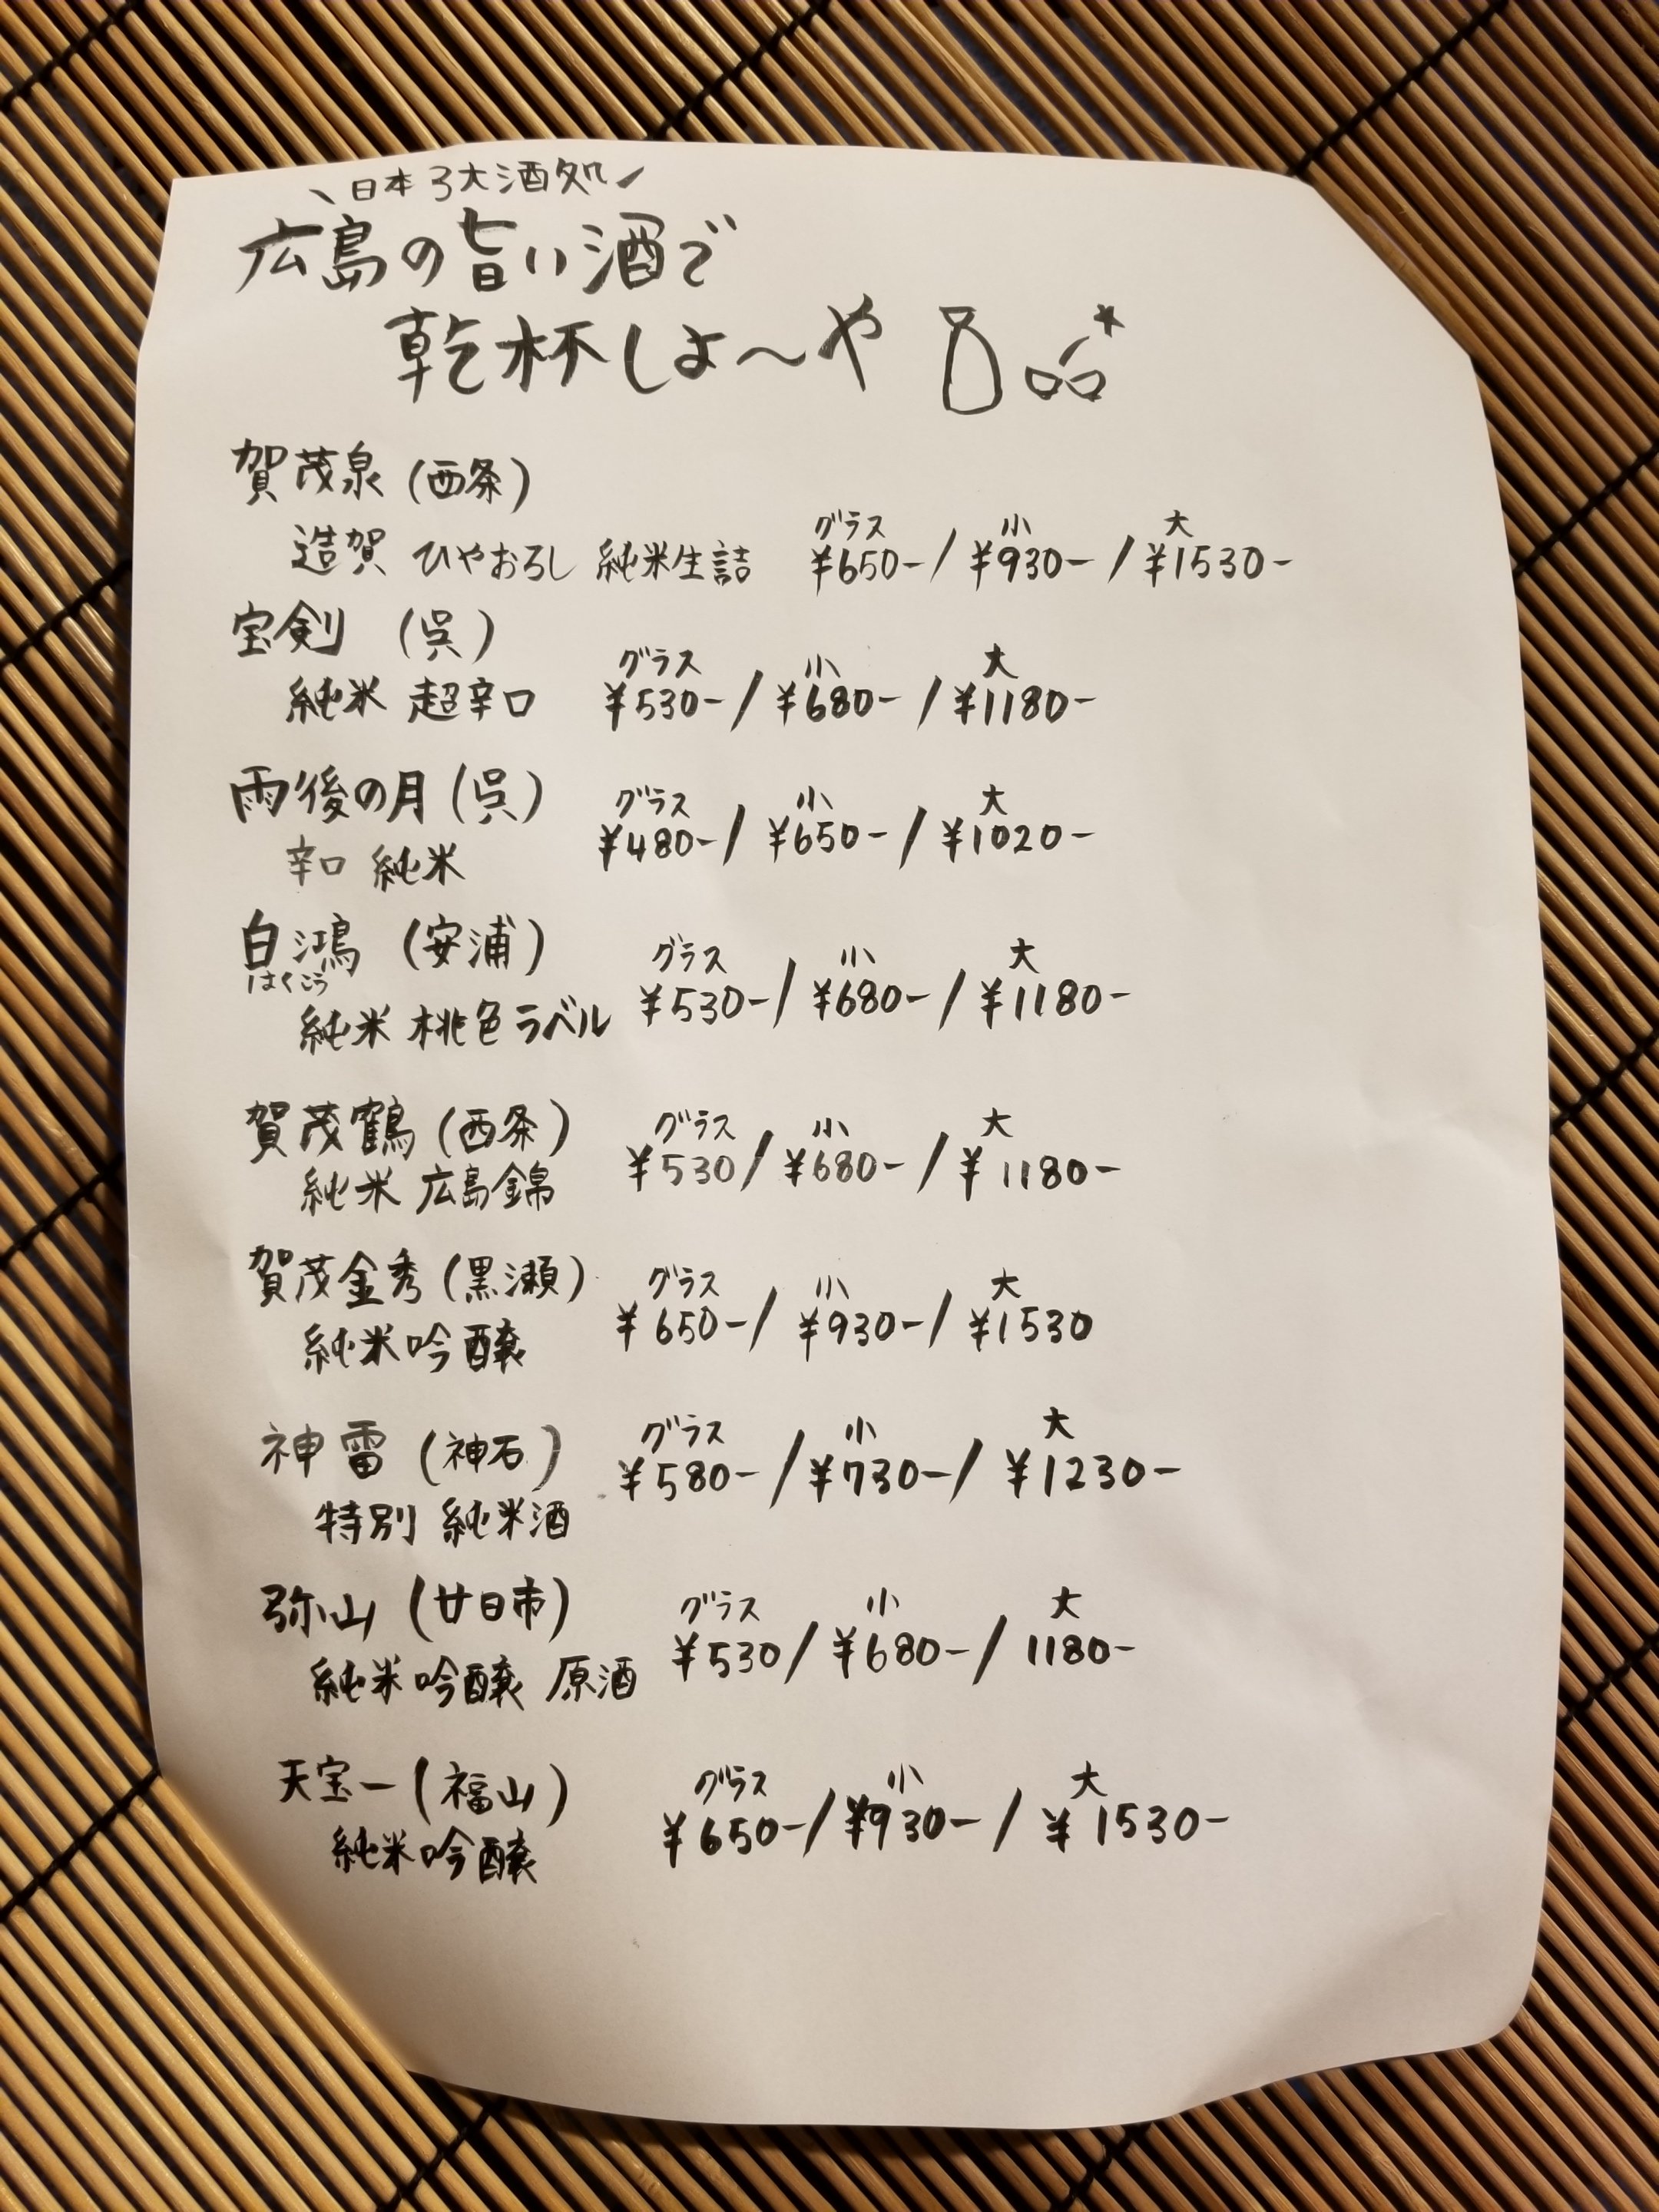 日本3大酒処
広島の旨い酒で
乾杯しよ～や
賀茂泉(西条)
グラス 小 大
造賀 ひやおろし 純米生詰 ¥650-/¥930-/¥1530-
宝剣 (呉)
グラス 小 大
純米 超辛口 ¥530-/¥680-/¥1180-
雨後の月(呉) グラス 小 大
¥480-/¥650-/¥1020-
辛口 純米
白鴻 (安浦) グラス 小 大
はくこう
¥530-/¥680-/¥1180-
純米 桃色ラベル
賀茂鶴(西条) グラス 小 大
¥530/¥680-/¥1180-
純米 広島錦
賀茂金秀(黒瀬) グラス 小 大
¥650-/¥930-/¥1530
純米吟醸
神雷 (神石) グラス 小 大
¥580-/¥730-/¥1230-
特別 純米酒
弥山 (廿日市) グラス 小 大
¥530/¥680-/1180-
純米吟醸 原酒
天宝一(福山) グラス 小 大
¥650-/¥930-/¥1530-
純米吟醸